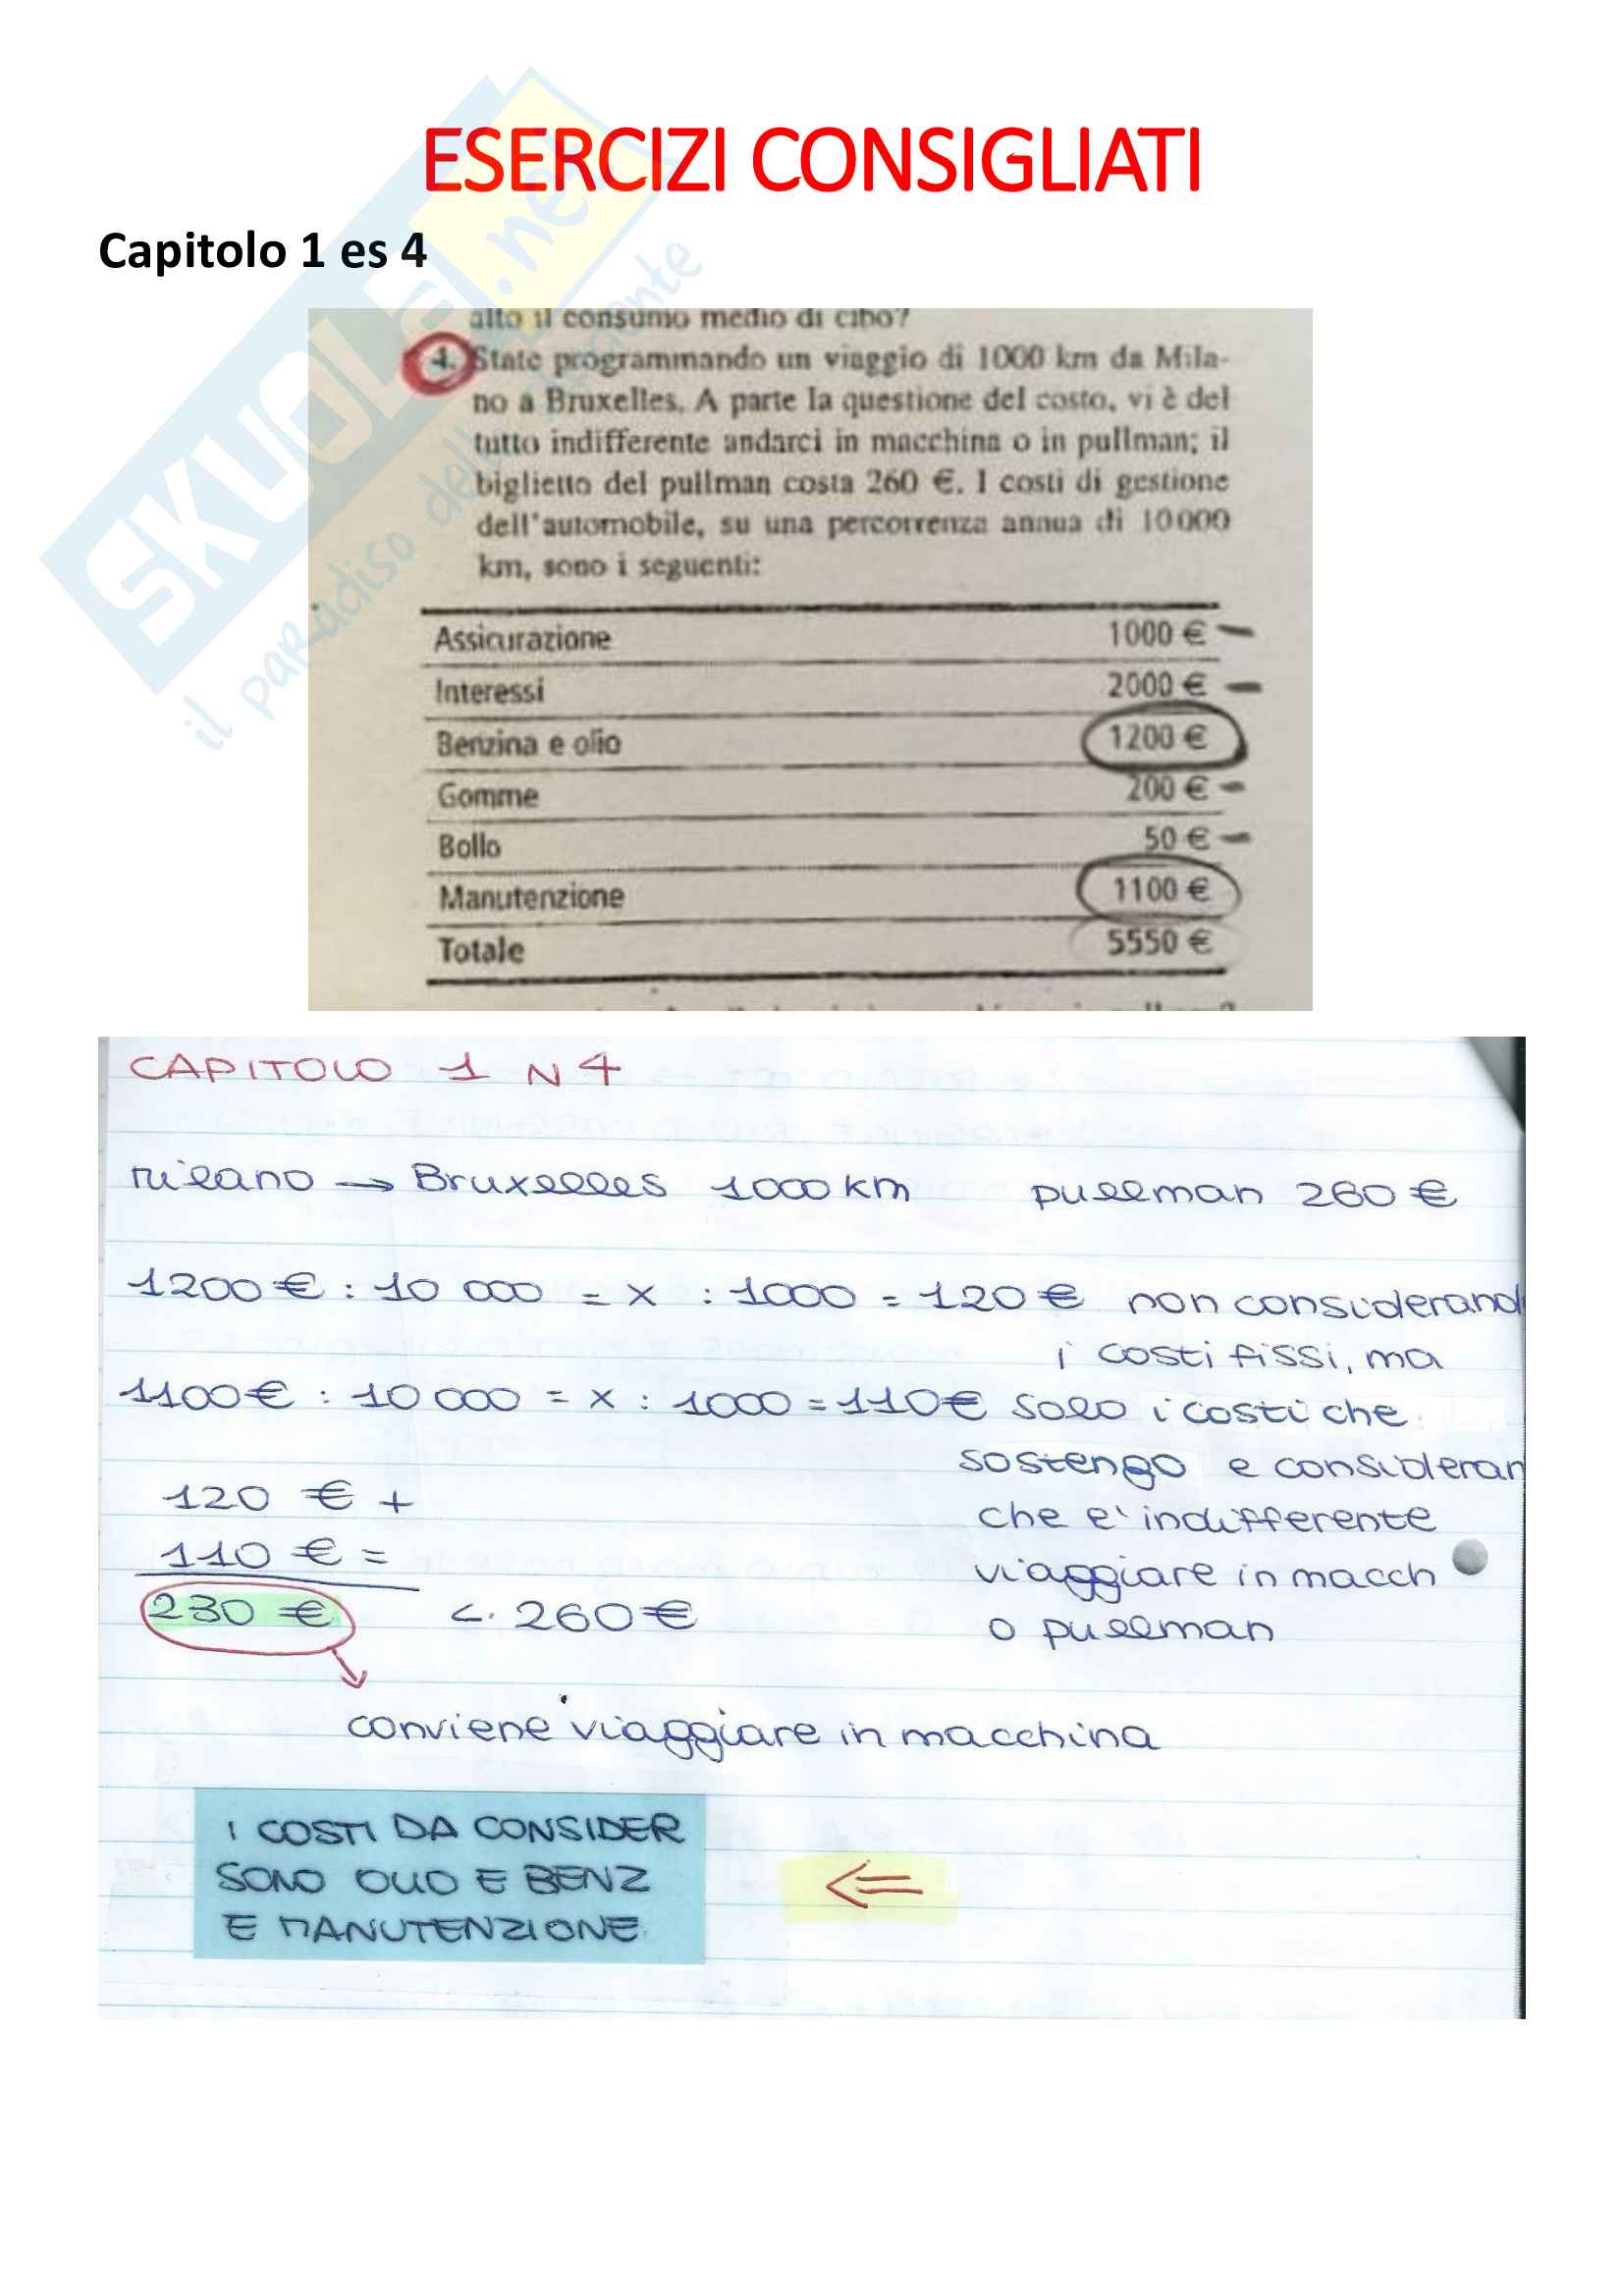 ESERCIZI CONSIGLIATI
Capitolo 1 es 4
SKUOLA.net
il paradiso dello studente
alto il consumo medio di cibo?
4. State programmando un viaggio di 1000 km da Mila-
no a Bruxelles. A parte la questione del costo, vi è del
tutto indifferente andarci in macchina o in pullman; il
biglietto del pullman costa 260 €. I costi di gestione
dell'automobile, su una percorrenza annua di 10000
km, sono i seguenti:
Assicurazione 1000 €
Interessi 2000 €
Benzina e olio 1200 €
Gomme 200 €
Bollo 50 €
Manutenzione 1100 €
Totale 5550 €
CAPITOLO 1 N 4
Milano → Bruxelles 1000 km pullman 260 €
1200 € : 10 000 = x : 1000 = 120 € non considerand
i costi fissi, ma
1100 € : 10 000 = x : 1000 = 110 € solo i costi che
sostengo e consideran
120 € + che e' indifferente
110 € = viaggiare in macch
230 € < 260 € o pullman
conviene viaggiare in macchina
I COSTI DA CONSIDER
SONO OLIO E BENZ
E MANUTENZIONE
⇐